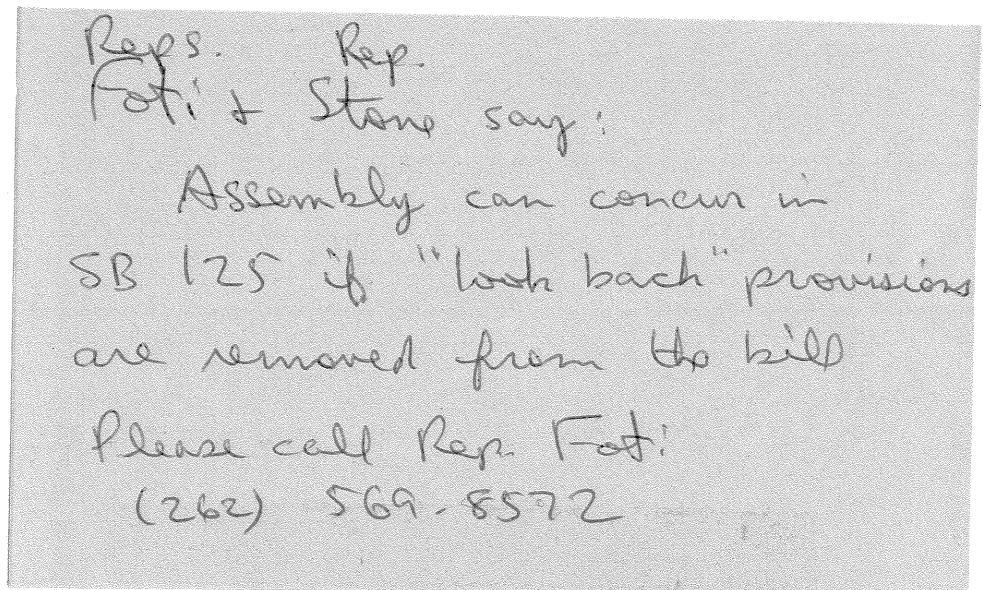 Reps. Rep.
Foti + Stone say:
Assembly can concur in
SB 125 if "look back" provisions
are removed from the bill
Please call Rep. Foti
(262) 569-8572